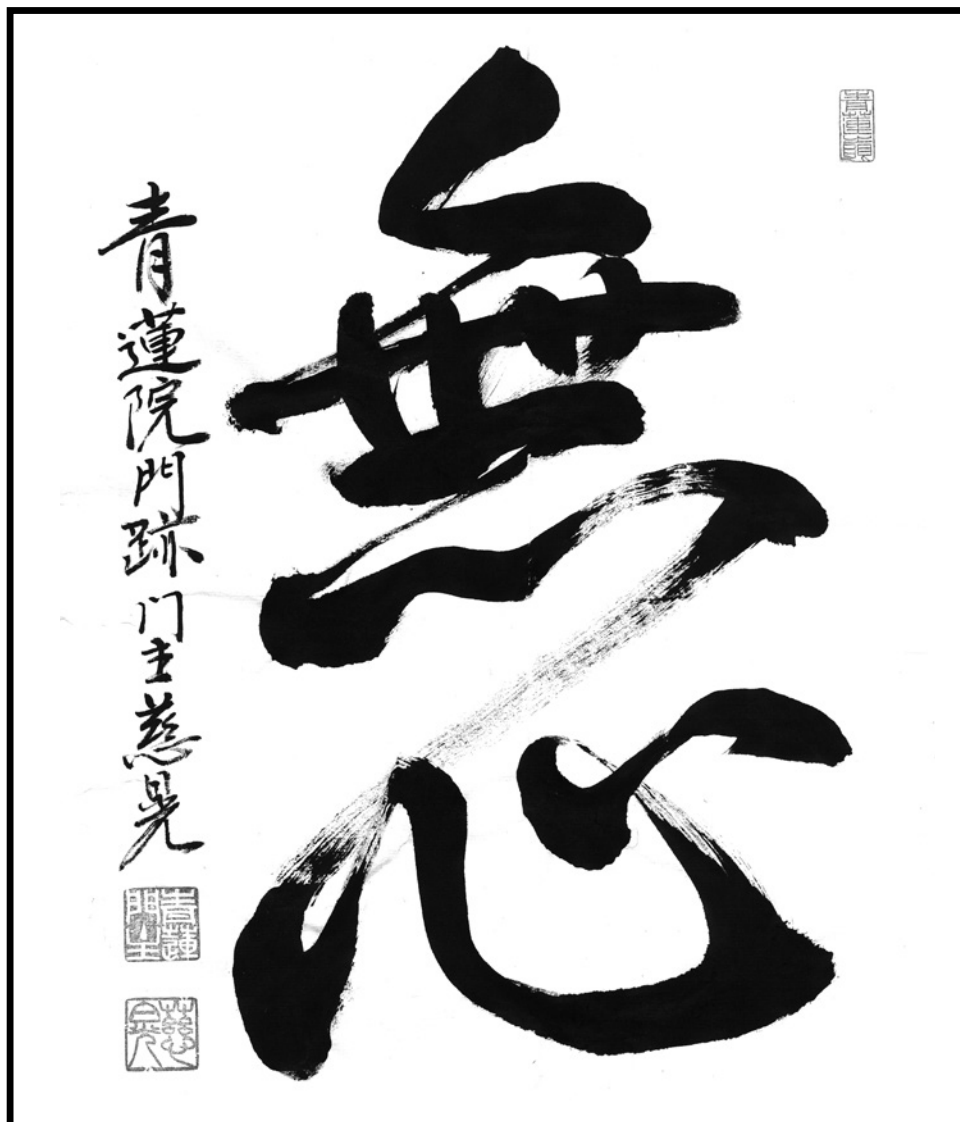 無心
青蓮院門跡 門主慈晃
青蓮
門主
慈
晃